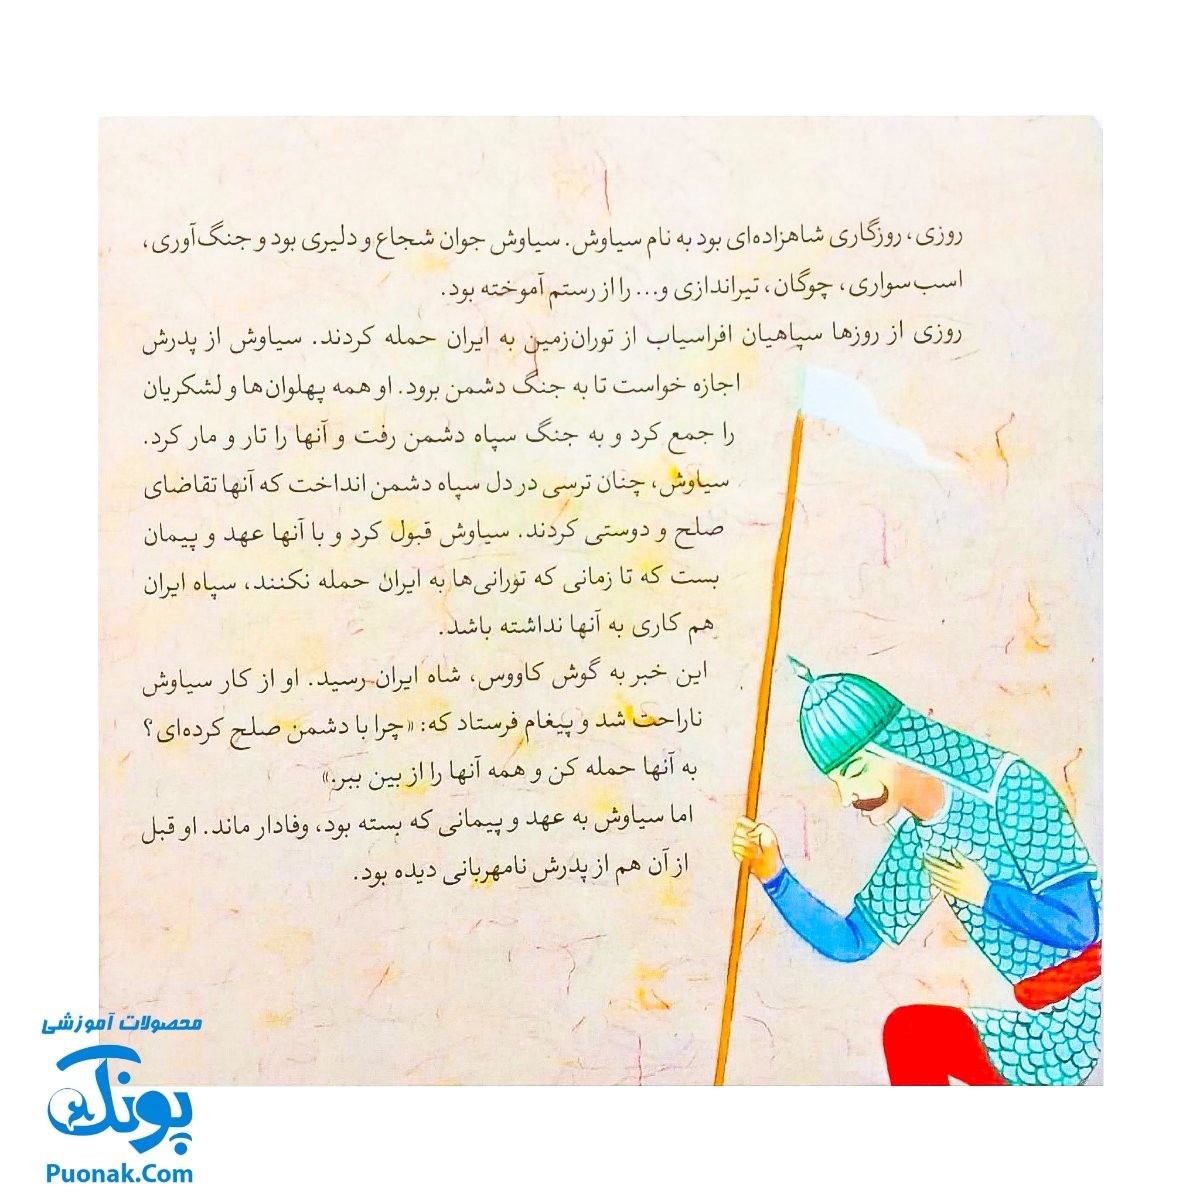 روزی، روزگاری شاهزاده‌ای بود به نام سیاوش. سیاوش جوان شجاع و دلیری بود و جنگ‌آوری،
اسب‌سواری، چوگان، تیراندازی و... را از رستم آموخته بود.
روزی از روزها سپاهیان افراسیاب از توران‌زمین به ایران حمله کردند. سیاوش از پدرش
اجازه خواست تا به جنگ دشمن برود. او همه پهلوان‌ها و لشکریان
را جمع کرد و به جنگ سپاه دشمن رفت و آنها را تار و مار کرد.
سیاوش، چنان ترسی در دل سپاه دشمن انداخت که آنها تقاضای
صلح و دوستی کردند. سیاوش قبول کرد و با آنها عهد و پیمان
بست که تا زمانی که تورانی‌ها به ایران حمله نکنند، سپاه ایران
هم کاری به آنها نداشته باشد.
این خبر به گوش کاووس، شاه ایران رسید. او از کار سیاوش
ناراحت شد و پیغام فرستاد که: «چرا با دشمن صلح کرده‌ای؟
به آنها حمله کن و همه آنها را از بین ببر.»
اما سیاوش به عهد و پیمانی که بسته بود، وفادار ماند. او قبل
از آن هم از پدرش نامهربانی دیده بود.
محصولات آموزشی
پونک
Puonak.Com